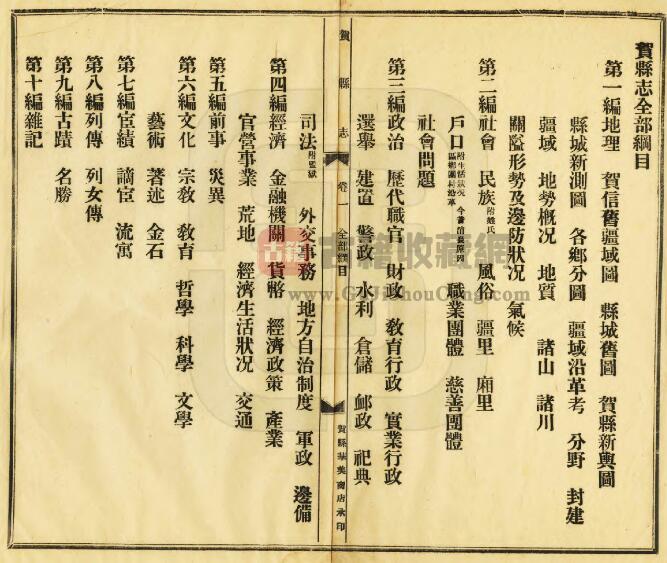 賀縣志全部綱目
第一編地理 賀信舊疆域圖 縣城舊圖 賀縣新輿圖
縣城新測圖 各鄉分圖 疆域沿革考 分野 封建
疆域 地勢概况 地質 諸山 諸川
關隘形勢及邊防狀况 氣候
第二編社會 民族附姓氏 風俗 疆里 廂里
戶口 職業團體 慈善團體
社會問題
第三編政治 歷代職官 財政 敎育行政 實業行政
選舉 建置 警政 水利 倉儲 郵政 祀典
賀縣志 卷一 全部綱目 賀縣華美商店承印
司法附監獄 外交事務 地方自治制度 軍政 邊備
第四編經濟 金融機關 貨幣 經濟政策 產業
官營事業 荒地 經濟生活狀况 交通
第五編前事 災異
第六編文化 宗敎 敎育 哲學 科學 文學
藝術 著述 金石
第七編宦績 謫宦 流寓
第八編列傳 列女傳
第九編古蹟 名勝
第十編雜記
古籍收藏網
www.GuJiShouCang.com